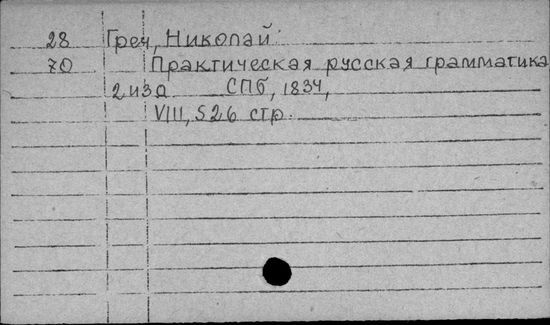 28 Греч, Николай
70 Практическая русская грамматика
2 изд СПб, 1834,
VIII, 526 стр.